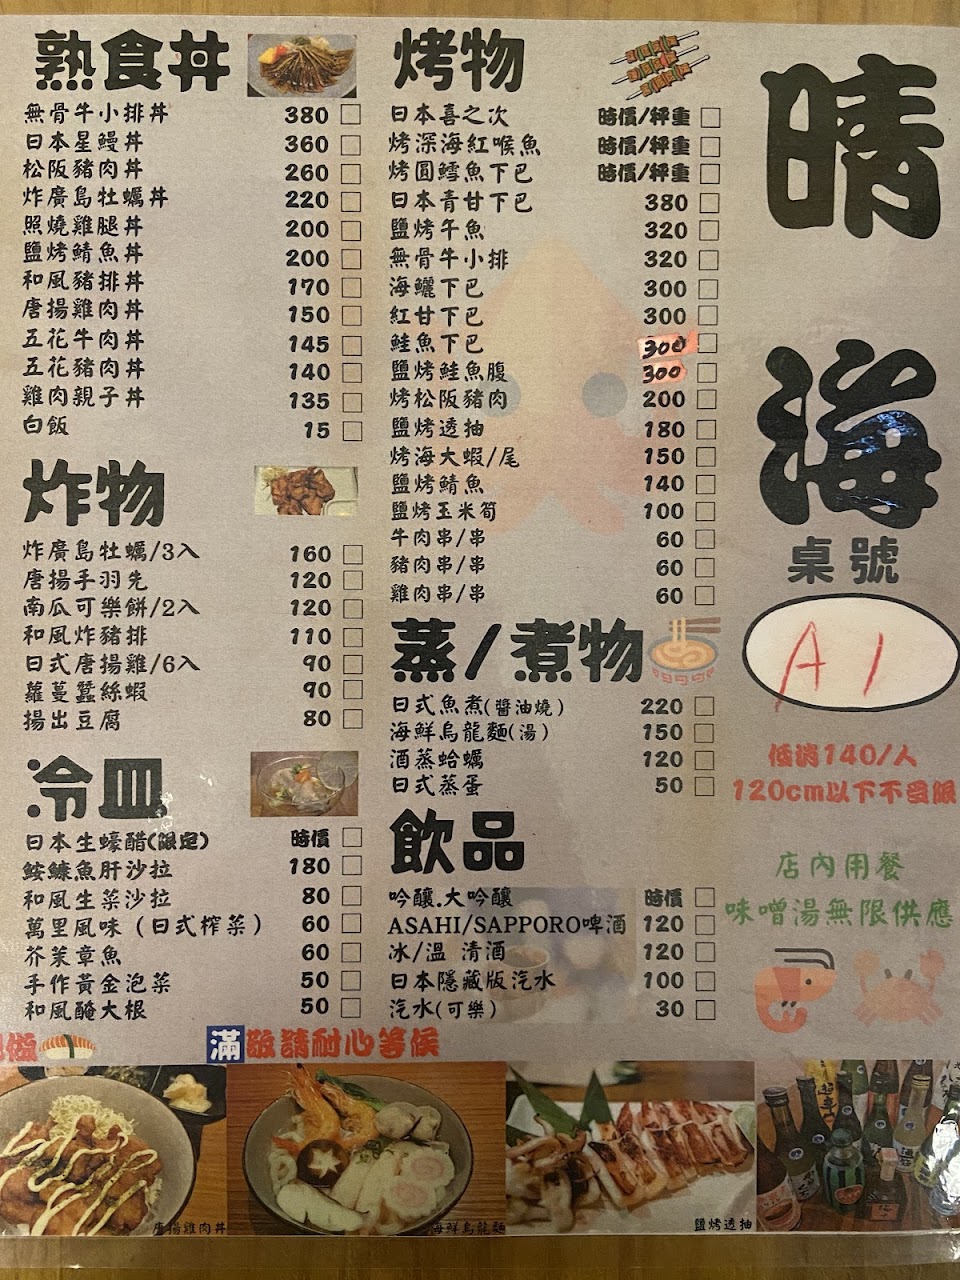 熟食丼
無骨牛小排丼 380
日本星鰻丼 360
松阪豬肉丼 260
炸廣島牡蠣丼 220
照燒雞腿丼 200
鹽烤鯖魚丼 200
和風豬排丼 170
唐揚雞肉丼 150
五花牛肉丼 145
五花豬肉丼 140
雞肉親子丼 135
白飯 15
炸物
炸廣島牡蠣/3入 160
唐揚手羽先 120
南瓜可樂餅/2入 120
和風炸豬排 110
日式唐揚雞/6入 90
蘿蔓蠶絲蝦 90
揚出豆腐 80
冷皿
日本生蠔醋(限定) 時價
鮟鱇魚肝沙拉 180
和風生菜沙拉 80
萬里風味(日式榨菜) 60
芥茉章魚 60
手作黃金泡菜 50
和風醃大根 50
烤物
日本喜之次 時價/秤重
烤深海紅喉魚 時價/秤重
烤圓鱈魚下巴 時價/秤重
日本青甘下巴 380
鹽烤午魚 320
無骨牛小排 320
海鱺下巴 300
紅甘下巴 300
鮭魚下巴 300
鹽烤鮭魚腹 300
烤松阪豬肉 200
鹽烤透抽 180
烤海大蝦/尾 150
鹽烤鯖魚 140
鹽烤玉米筍 100
牛肉串/串 60
豬肉串/串 60
雞肉串/串 60
蒸/煮物
日式魚煮(醬油燒) 220
海鮮烏龍麵(湯) 150
酒蒸蛤蠣 120
日式蒸蛋 50
飲品
吟釀.大吟釀 時價
ASAHI/SAPPORO啤酒 120
冰/溫 清酒 120
日本隱藏版汽水 100
汽水(可樂) 30
晴海
桌號
A1
低消140/人
120cm以下不受限
店內用餐
味噌湯無限供應
滿 敬請耐心等候
唐揚雞肉丼
海鮮烏龍麵
鹽烤透抽